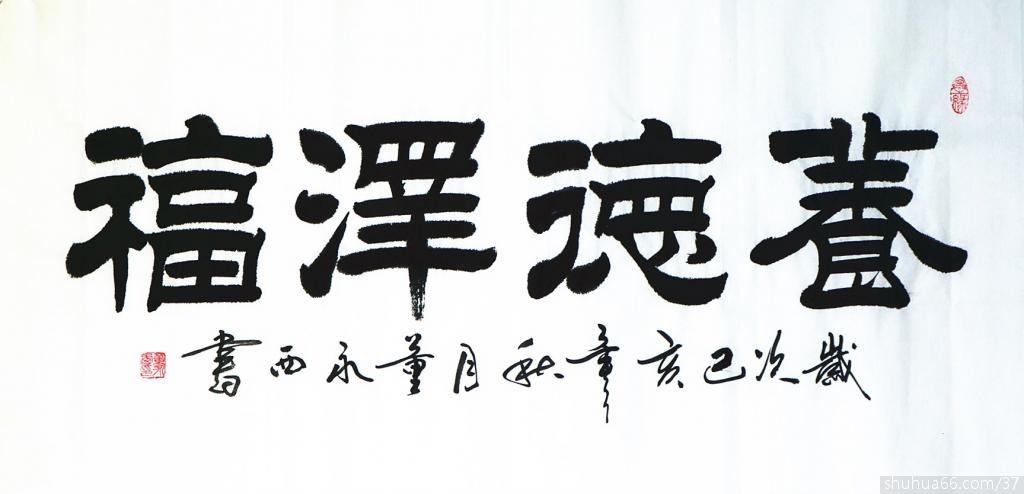 養德澤福
歲次己亥年秋月董永西書
shuhua66.com/37